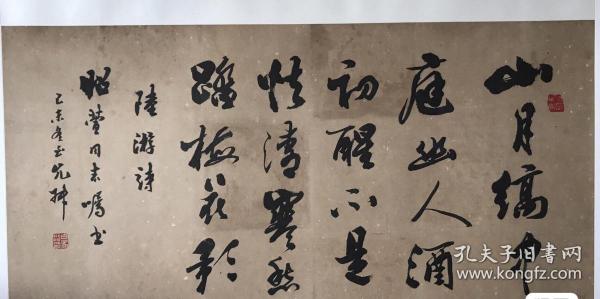 山月縞中
庭幽人酒
初醒不是
怯清寒愁
踏梅花影
陸游詩
昭瑩同志嘱书
乙未冬
孔夫子旧书网
www.kongfz.com